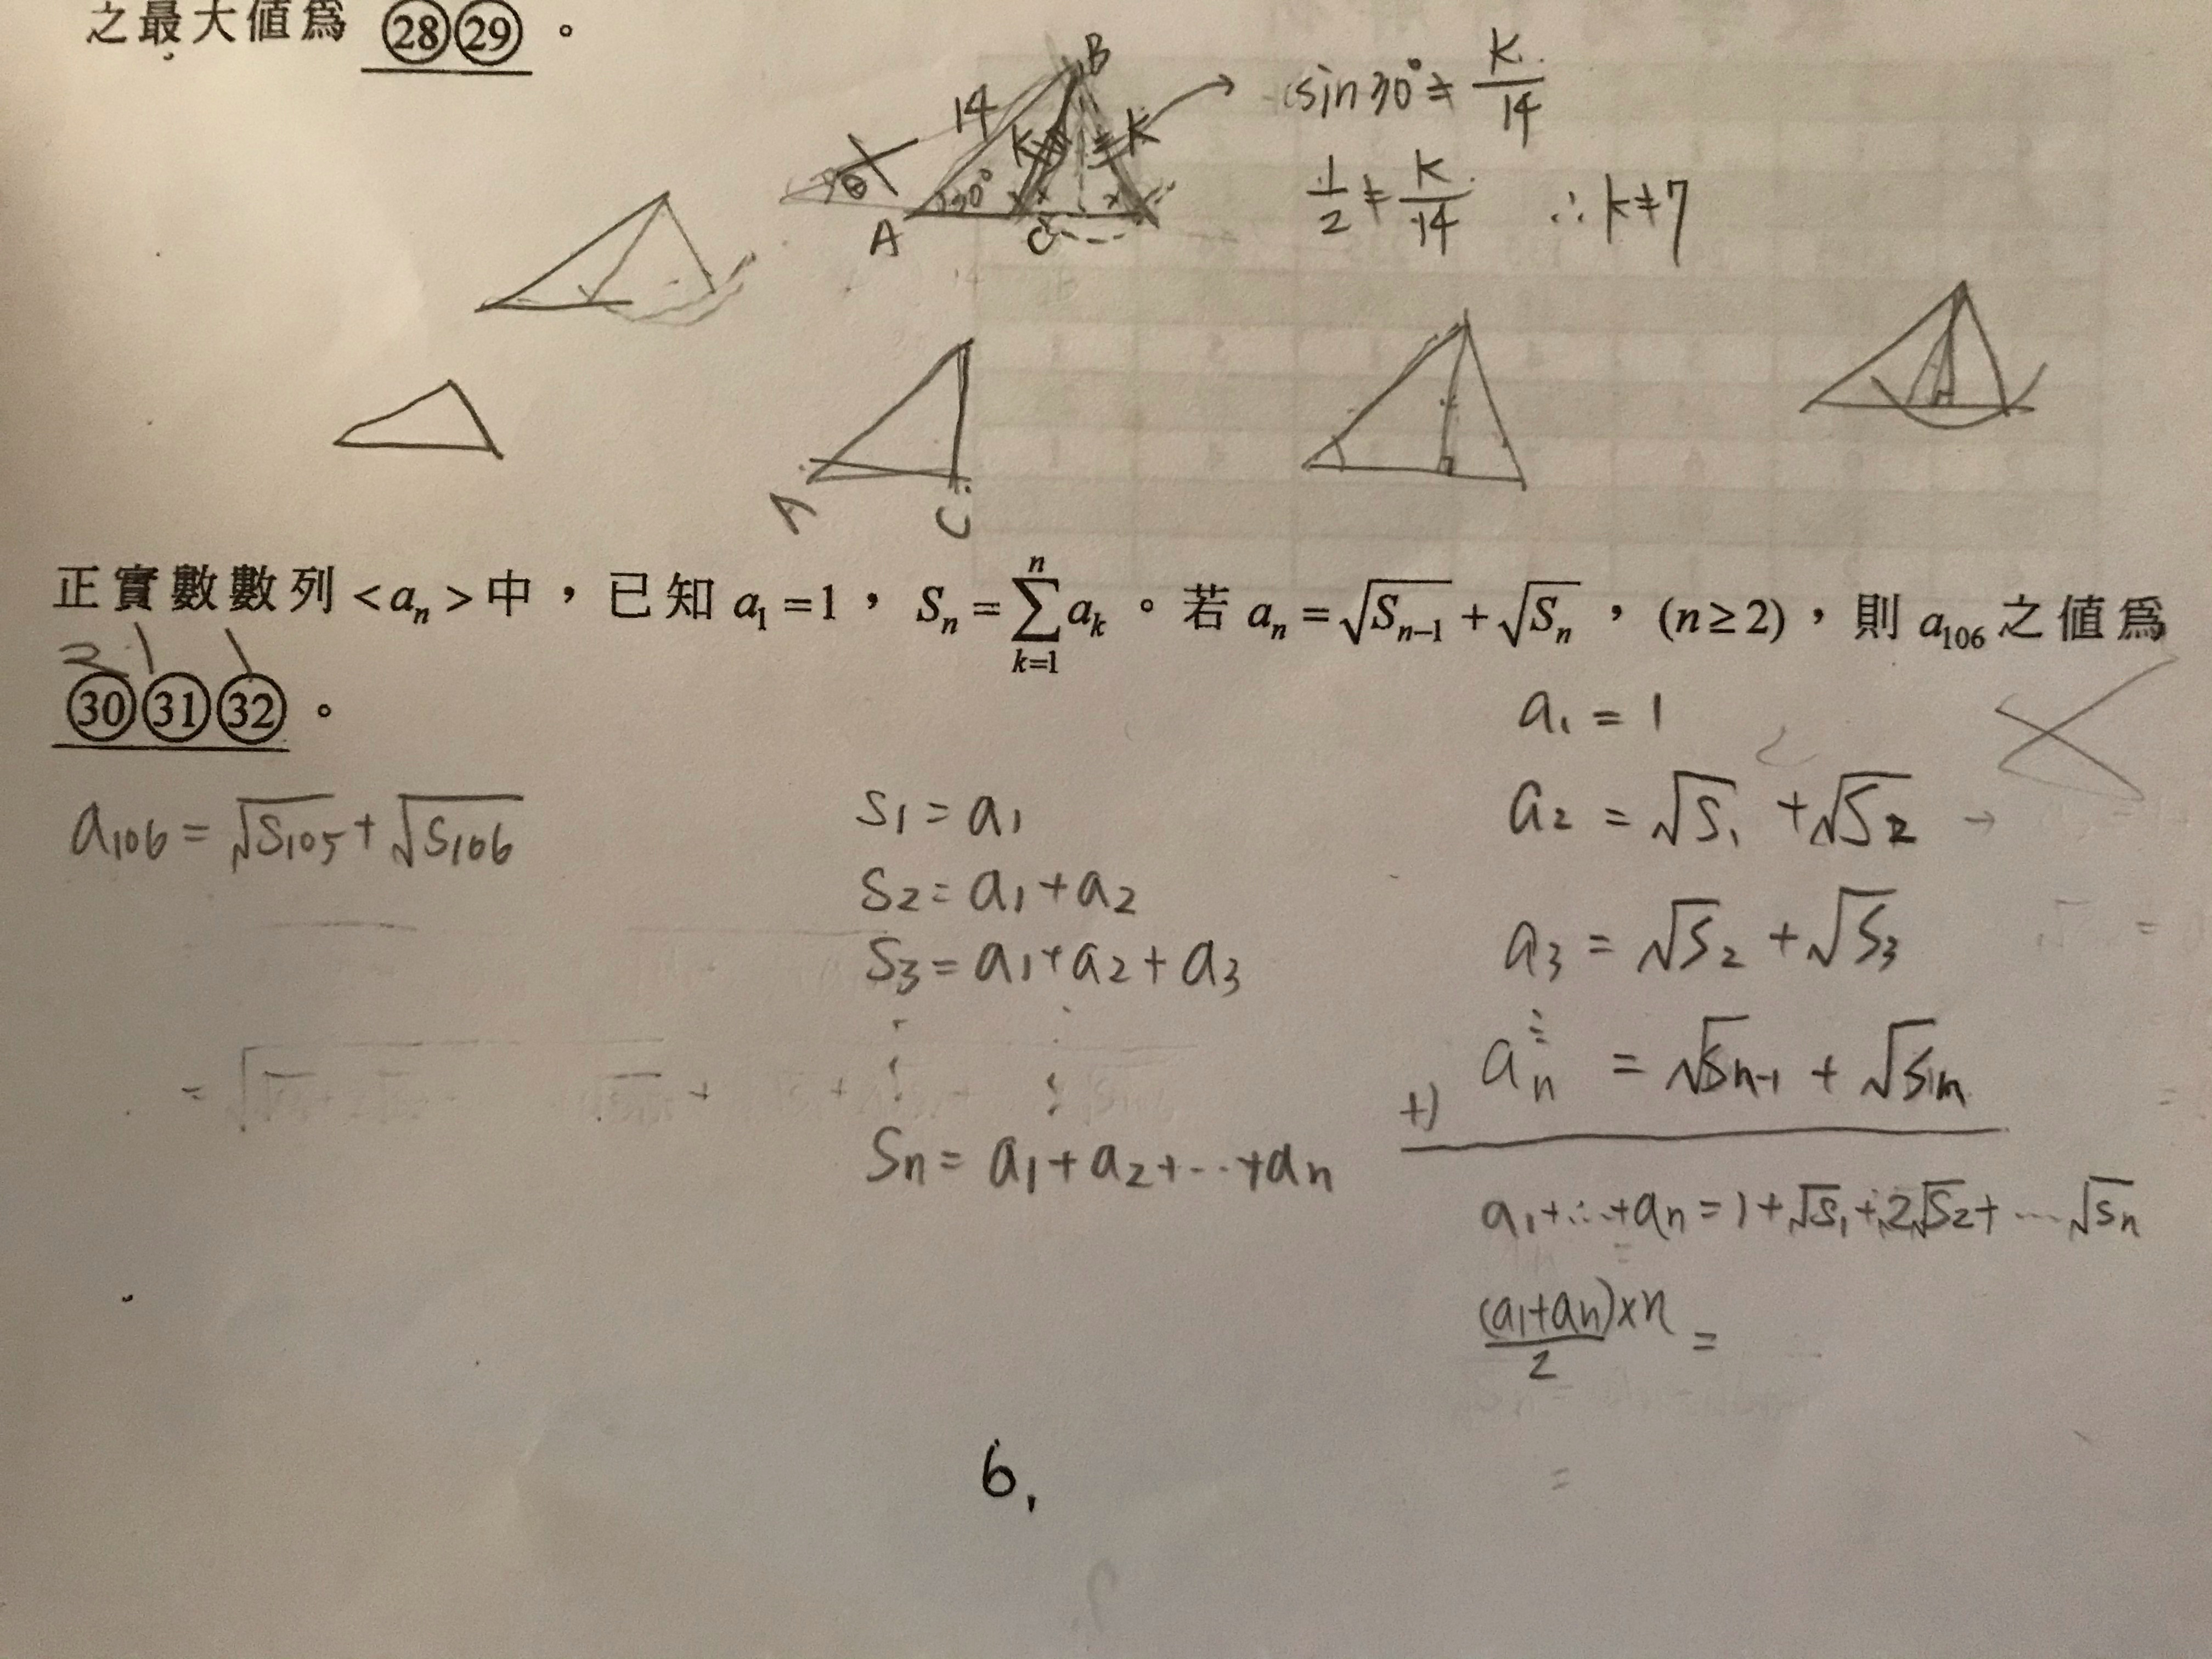 之最大值為 ㉘㉙ 。
B
14
K
K
θ
30°
A
C
sin30° ≠ K/14
1/2 ≠ K/14 ∴ k≠7
A
C
正實數數列 <aₙ> 中，已知 a₁ = 1， Sₙ = ∑ₖ₌₁ⁿ aₖ 。若 aₙ = √Sₙ₋₁ + √Sₙ ，(n ≥ 2)，則 a₁₀₆ 之值為
2 1 1
㉚㉛㉜ 。
a₁₀₆ = √S₁₀₅ + √S₁₀₆
S₁ = a₁
S₂ = a₁ + a₂
S₃ = a₁ + a₂ + a₃
Sₙ = a₁ + a₂ + ... + aₙ
a₁ = 1
a₂ = √S₁ + √S₂ →
a₃ = √S₂ + √S₃
⋮
+) aₙ = √Sₙ₋₁ + √Sₙ
a₁ + ... + aₙ = 1 + √S₁ + 2√S₂ + ... √Sₙ
(a₁+aₙ)×n/2 =
6,